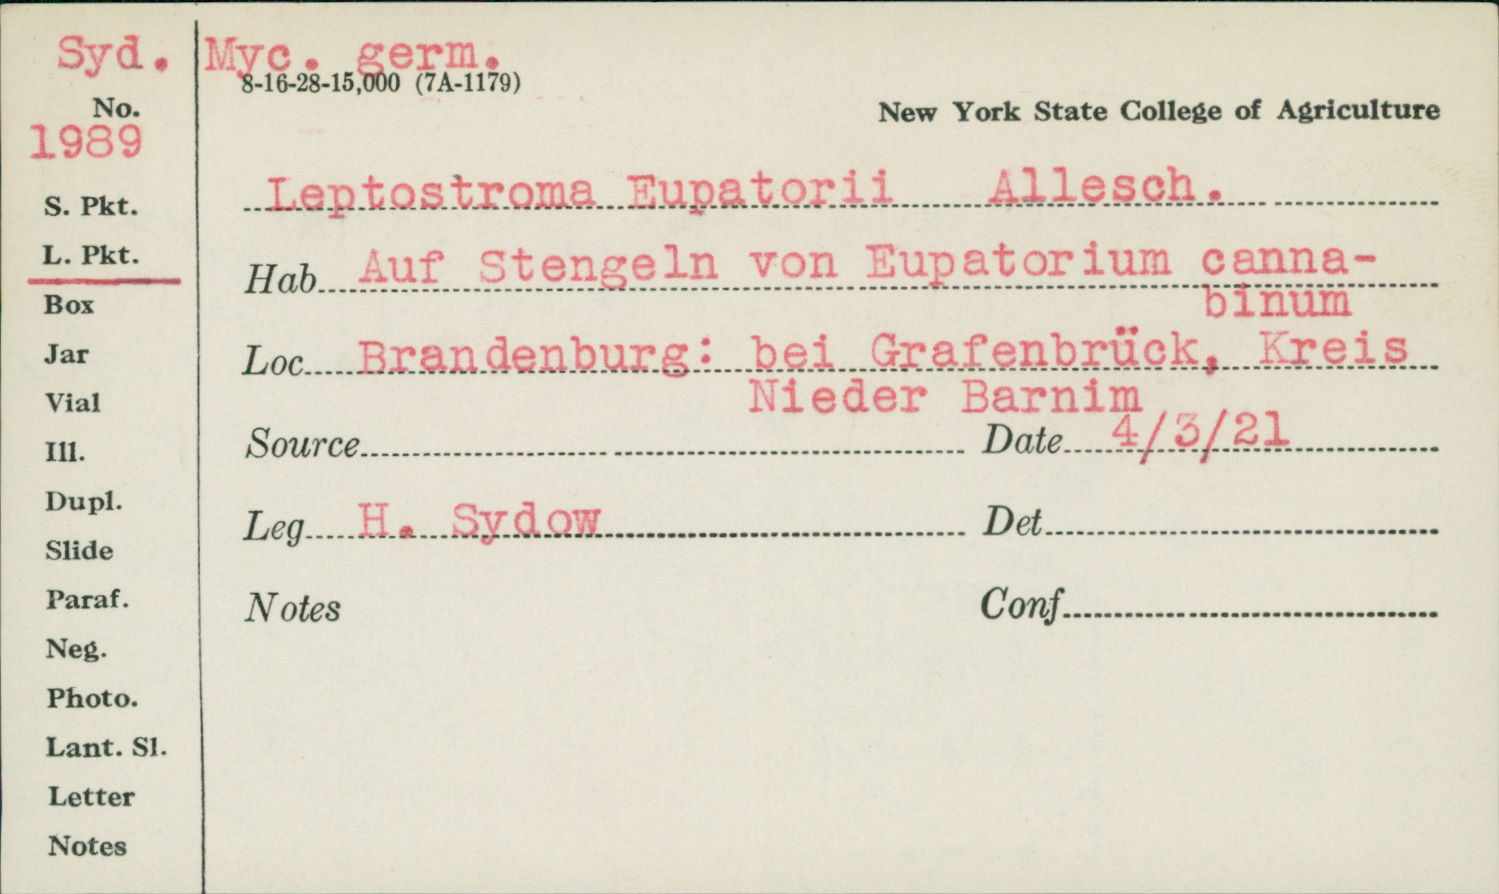 Syd. Myc. germ.
8-16-28-15,000 (7A-1179)
No.
New York State College of Agriculture
1989
Leptostroma Eupatorii Allesch.
S. Pkt.
L. Pkt.
Hab. Auf Stengeln von Eupatorium canna-
binum
Box
Jar
Loc. Brandenburg: bei Grafenbrück, Kreis
Nieder Barnim
Vial
Ill.
Source Date 4/3/21
Dupl.
Leg. H. Sydow Det.
Slide
Paraf.
Notes Conf.
Neg.
Photo.
Lant. Sl.
Letter
Notes